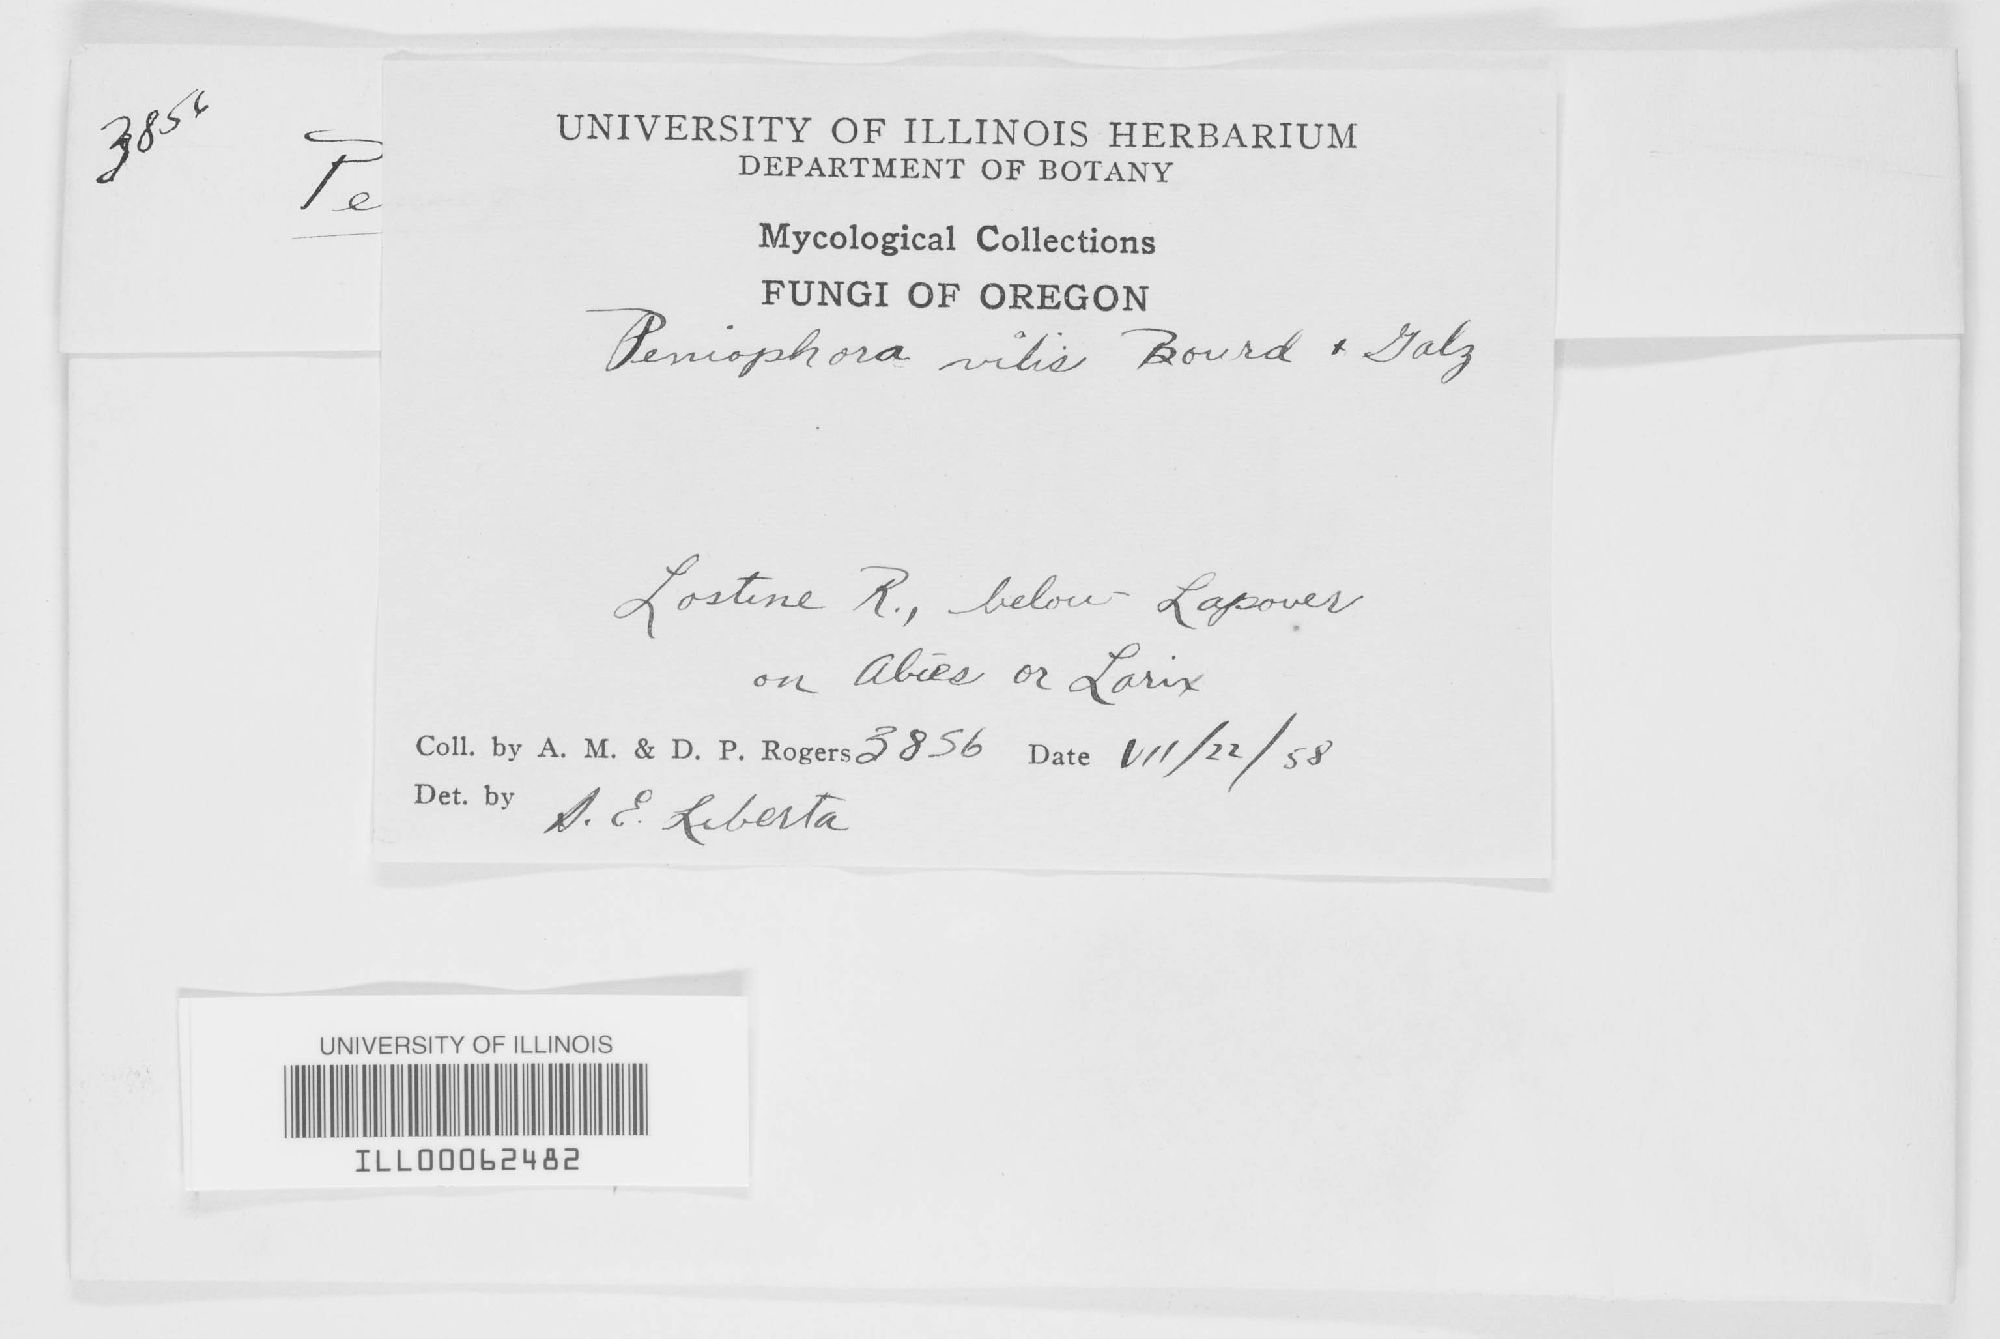 3856
Pe
UNIVERSITY OF ILLINOIS HERBARIUM
DEPARTMENT OF BOTANY
Mycological Collections
FUNGI OF OREGON
Peniophora vilis Bourd & Galz
Lostine R., below Lapover
on Abies or Larix
Coll. by A. M. & D. P. Rogers 3856 Date VII/22/58
Det. by A. E. Liberta
UNIVERSITY OF ILLINOIS
ILL00062482